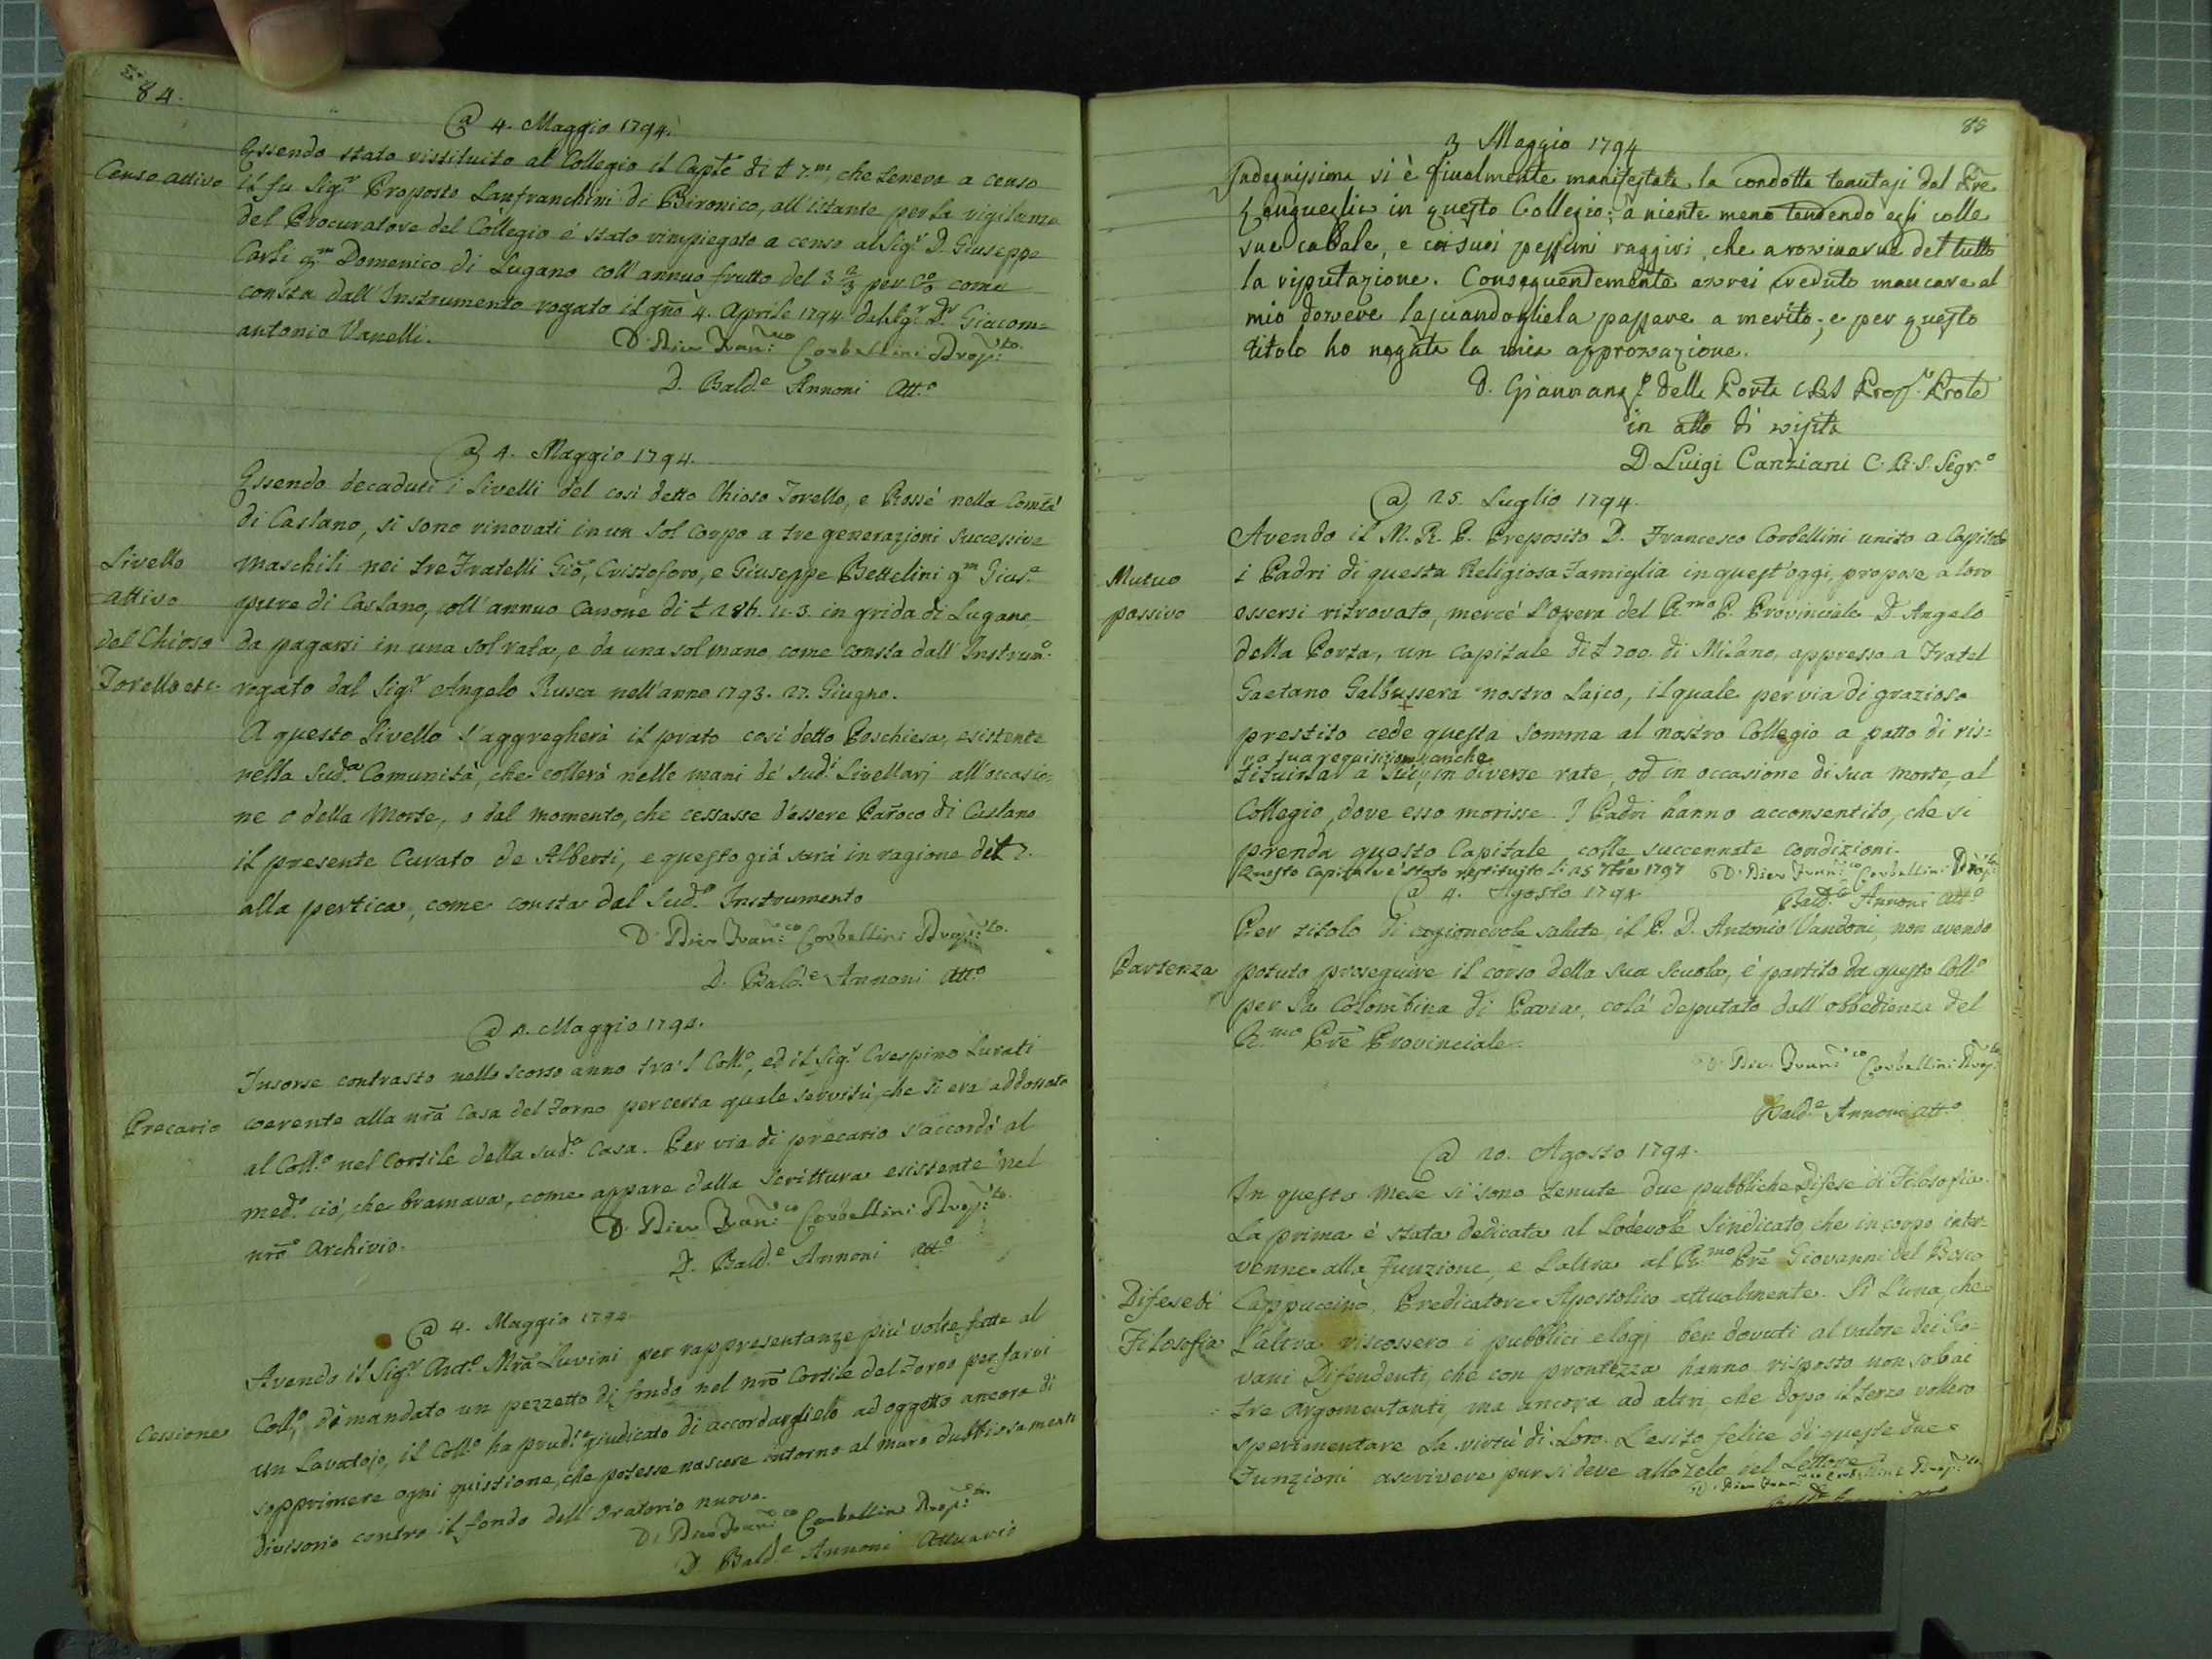 84.
@ 4. Maggio 1794.
Essendo stato ristituito al Collegio il Caplẽ di £ 7.m, che teneva a censo
Censo attivo
il fu Sig.r Proposto Lanfranchini di Bironico, all'istante per la vigilanza
del Procuratore del Collegio é stato rimpiegato a censo al Sig.r D. Giuseppe
Carli q.m Domenico di Lugano coll'annuo frutto del 3 2/3 per 0/0 come
consta dall'Instrumento rogato il gñô 4. Aprile 1794 dal Sg.r D.r Giacom=
antonio Vanelli.
D. Pier Fran.co Corbellini Prop.to
D. Bald.e Annoni Att.o
@ 4. Maggio 1794.
Essendo decaduti i Livelli del così detto Chioso Torello, e Rossé nella Com̃tá
di Caslano, si sono rinovati in un sol corpo a tre generazioni successive
Livello
attivo
del Chioso
Torello etc.
maschili nei tre Fratelli Giõ, Cristoforo, e Giuseppe Bettelini q.m Gius.e
pure di Caslano, coll'annuo Canone di £ 186. 11. 3. in grida di Lugano
da pagarsi in una sol rata, e da una sol mano, come consta dall'Instrum.o
rogato dal Sig.r Angelo Rusca nell'anno 1793. 27. Giugno.
A questo Livello s'aggregherà il prato così detto Boschiesa, esistente
nella Sud.a Comunità, che collerà nelle mani de' sud.i Livellarj all'occasio-
ne o della Morte, o dal momento, che cessasse d'essere Paroco di Caslano
il presente Curato de Alberti, e questo già sarà in ragione di £ 7.
alla pertica, come consta dal Sud.o Instrumento
D. Pier Fran.co Corbellini Prop.to
D. Bald.e Annoni Att.o
@ 4. Maggio 1794.
Insorse contrasto nello scorso anno tra 'l Coll.o, ed il Sig.r Crespino Lurati
Precario
coerente alla nrã Casa del Forno per certa quale servitù, che si era addossata
al Coll.o nel Cortile della sud.a Casa. Per via di precario s'accordò al
med.o ciò, che bramava, come appare dalla Scrittura esistente nel
nrõ Archivio.
D. Pier Fran.co Corbellini Prop.to
D. Bald.e Annoni Att.o
@ 4. Maggio 1794.
Avendo il Sig.r Ant.o Mrã Luvini per rappresentanze più volte fatte al
Cessione
Coll.o, dimandato un pezzetto di fondo nel nrõ Cortile del Forno per farvi
un Lavatojo, il Coll.o ha prud.te giudicato di accordarglielo ad oggetto ancora di
sopprimere ogni quistione, che potesse nascere intorno al muro dubbiosamente
divisorio contro il fondo dell'Oratorio nuovo.
D. Pier Fran.co Corbellini Prop.to
D. Bald.e Annoni Attuario
85
3 Maggio 1794
Indegnissima si è finalmente manifestata la condotta tenutasi dal Prẽ
in questo Collegio; a niente meno tendendo egli colle
sue cabale, e coi suoi pessimi raggiri, che a rovinarne del tutto
la riputazione. Conseguentemente avrei creduto mancare al
mio dovere lasciandogliela passare a merito; e per questo
titolo ho negata la mia approvazione.
della Porta CRS
in atto di visita
D. Luigi Canziani C. R. S. Segr.o
@ 25. Luglio 1794.
Avendo il M. R. P. Preposito D. Francesco Corbellini unito a Capitolo
Mutuo
passivo
i Padri di questa Religiosa Famiglia in quest'oggi, propose a loro
essersi ritrovato, mercé l'opera del R.mo P. Provinciale D. Angelo
della Porta, un Capitale di £ 700. di Milano, appresso a Fratel
Gaetano Galbussera nostro Lajco, il quale per via di grazioso
prestito cede questa somma al nostro Collegio a patto di ris=
a sua requisizione anche
tituirla a Lui, in diverse rate, od in occasione di sua morte, al
Collegio, dove esso morisse. I Padri hanno acconsentito, che si
prenda questo Capitale colle succennate condizioni.
Questo Capitale è stato restituito li 25 7bre 1797
D. Pier Fran.co Corbellini Prop.to
Bald.e Annoni Att.o
@ 4. Agosto 1794.
Per titolo di cagionevole salute, il P. D. Antonio Vandoni, non avendo
Partenza
potuto proseguire il corso della sua Scuola, è partito da questo Coll.o
per la Colombina di Pavia, colà deputato dall'obbedienza del
R.mo Prẽ Provinciale.
D. Pier Fran.co Corbellini Prop.to
Bald.e Annoni Att.o
@ 20. Agosto 1794.
In questo mese si sono tenute due pubbliche Difese di Filosofia.
La prima é stata dedicata al Lodevole Sindicato, che in corpo inter-
venne alla Funzione, e l'altra al R.mo Prẽ Giovanni del Bosco
Difese di
Filosofia
Cappuccino, Predicatore Apostolico attualmente. Sì l'una, che
l'altra riscossero i pubblici elogj ben dovuti al valore dei Gio-
vani Difendenti, che con prontezza hanno risposto non sol ai
tre Argomentanti, ma ancora ad altri, che dopo il terzo vollero
sperimentare la virtù di Loro. L'esito felice di queste due
Funzioni ascrivere pur si deve allo zelo del Lettore
D. Pier Fran.co Corbellini Prop.to